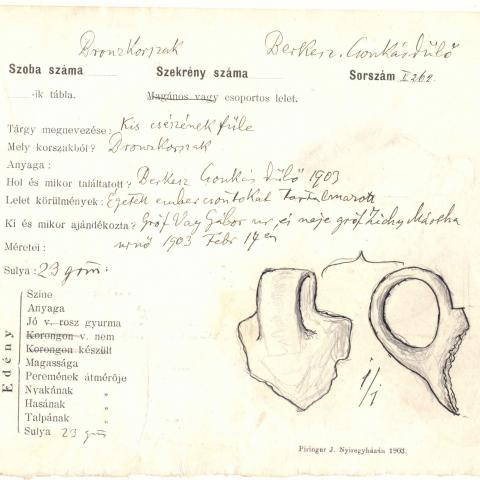 Bronzkorszak Berkesz. Csonkásdűlő
Szoba száma Szekrény száma Sorszám I 262
-ik tábla. Magános vagy csoportos lelet.
Tárgy megnevezése: Kis csészének füle
Mely korszakból? Bronzkorszak
Anyaga :
Hol és mikor találtatott? Berkesz Csonkás Dűlő 1903
Lelet körülmények: Égetett embercsontokat tartalmazott
Ki és mikor ajándékozta? Gróf Vay Gábor ur, és neje gróf Zichy Mártha
Méretei : urnő 1903 Febr 14 én
Sulya : 23 grm:
Edény
Szine
Anyaga
Jó v. rosz gyurma
Korongon v. nem
Korongon készült
Magassága
Peremének átmérője
Nyakának „
Hasának „
Talpának „
Sulya 23 grm
1/1
Piringer J. Nyiregyházán 1903.